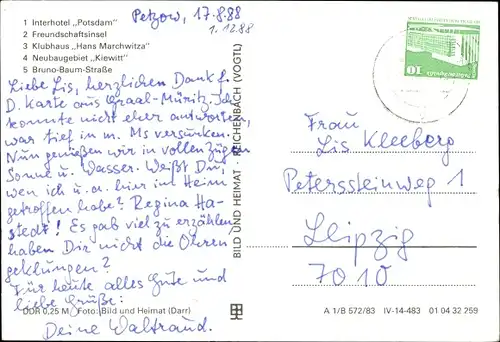 1 Interhotel „Potsdam"
2 Freundschaftsinsel
3 Klubhaus „Hans Marchwitza"
4 Neubaugebiet „Kiewitt"
5 Bruno-Baum-Straße
Petzow, 17.8.88
1.12.88
Liebe Lis, herzlichen Dank f.
D. Karte aus Graal-Müritz. Ich
konnte nicht eher antworten,
war tief in m. Ms versunken.
Nun genießen wir in vollen Zügen
Sonne u. Wasser. Weißt Du,
wen ich u. a. hier im Heim
getroffen habe? Regina Ha-
stedt! Es gab viel zu erzählen,
haben Dir nicht die Ohren
geklungen?
Für heute alles Gute und
liebe Grüße:
Deine Waltraud.
DDR 0,25 M Foto: Bild und Heimat (Darr)
BILD UND HEIMAT REICHENBACH (VOGTL)
10
Frau
Lis Kleeberg
Peterssteinweg 1
Leipzig
7010
A 1/B 572/83 IV-14-483 01 04 32 259